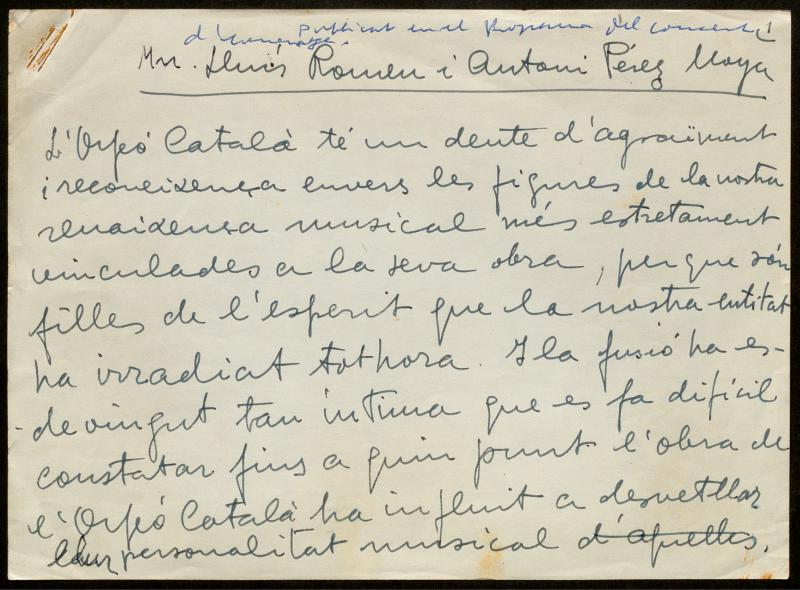 publicat en el Programa del concert
d'homenatge. 1
Mn. Lluís Romeu i Antoni Pérez Moya
L'Orfeó Català té un deute d'agraïment
i reconeixença envers les figures de la nostra
renaixença musical més estretament
vinculades a la seva obra, perque són
filles de l'esperit que la nostra entitat
ha irradiat tothora. I la fusió ha es-
devingut tan íntima que es fa difícil
constatar fins a quin punt l'obra de
l'Orfeó Català ha influit a desvetllar
llur personalitat musical d'aquelles.